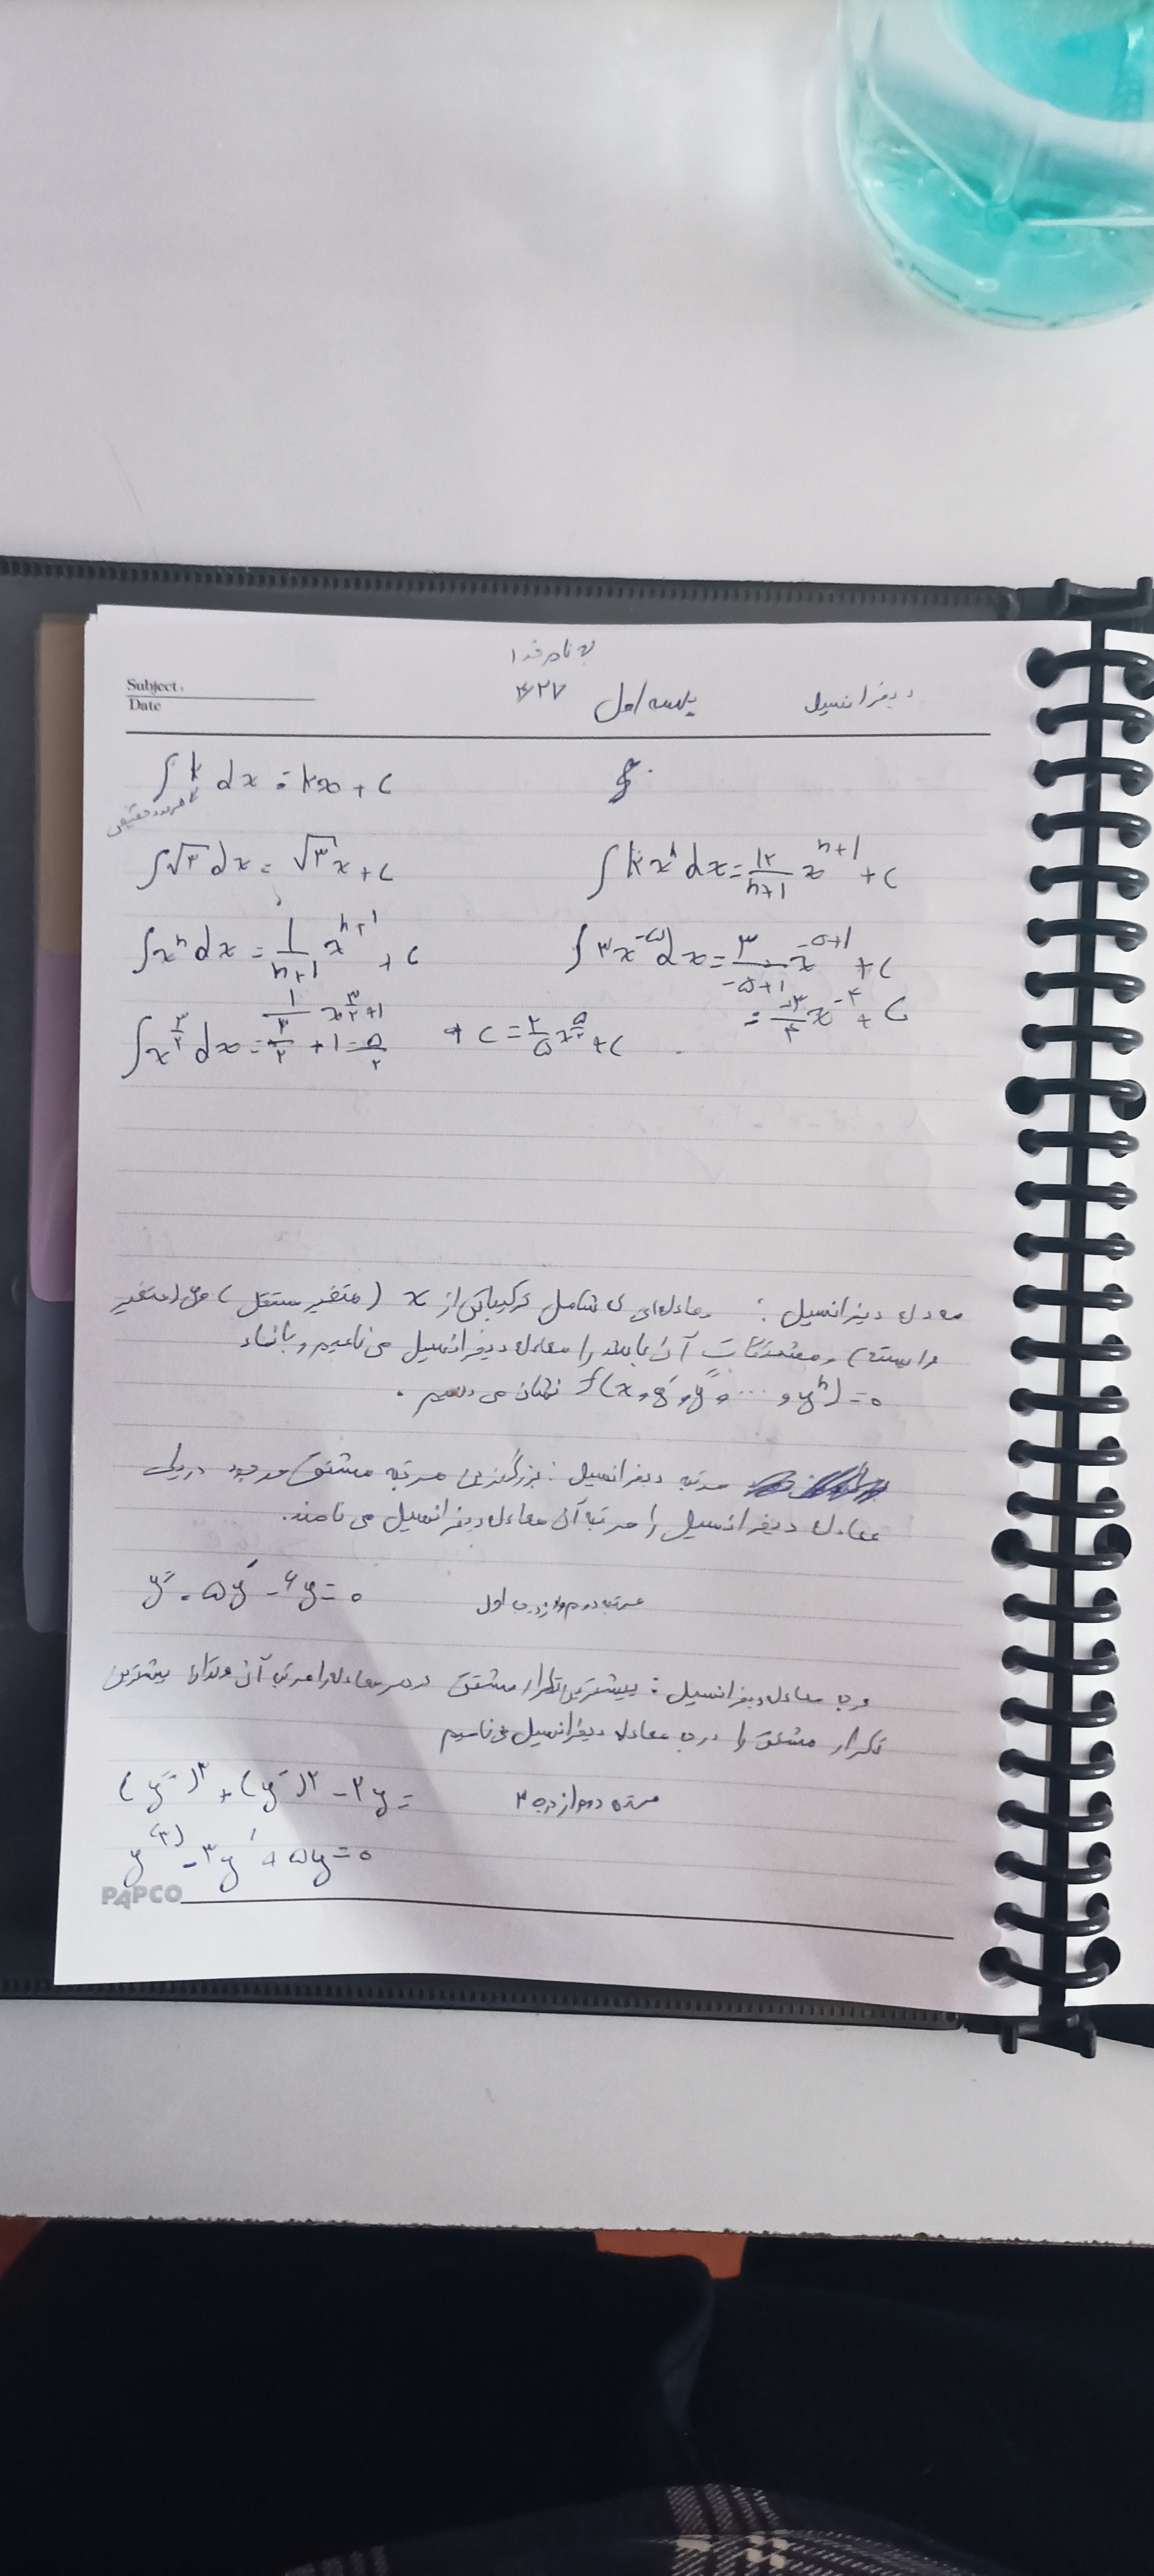 به نام خدا
Subject.
Date
دیفرانسیل جلسه اول ۴۲۷
∫ k dx = kx + c
∫√۳ dx = √۳ x + c
∫ k xⁿ dx = k/(n+1) x^(n+1) + c
∫ xⁿ dx = 1/(n+1) x^(n+1) + c
∫ ۳x^(-۵) dx = ۳/(-۵+1) x^(-۵+1) + c
= -۳/۴ x^(-۴) + C
∫ x^(۳/۲) dx = 1/(۳/۲ + 1 = ۵/۲) x^(۳/۲+1) + c = ۲/۵ x^(۵/۲) + c
معادله دیفرانسیل : معادله‌ای که شامل ترکیباتی از x (متغیر مستقل) و y (متغیر
وابسته) و مشتقات آن باشد را معادله دیفرانسیل می‌نامیم و با نماد
f(x, y', y'', ..., yⁿ) = ۰ نشان می‌دهیم .
مرتبه دیفرانسیل : بزرگترین مرتبه مشتق موجود در یک
معادله دیفرانسیل را مرتبه آن معادله دیفرانسیل می‌نامند.
y'' - ۵y' - ۶y = ۰ مرتبه دوم و از درجه اول
درجه معادله دیفرانسیل : بیشترین تکرار مشتق در هر معادله را مرتبه آن و توان بیشترین
تکرار مشتق را درجه معادله دیفرانسیل می‌نامیم
(y'')^۳ + (y')^۲ - ۳y = مرتبه دوم از درجه ۳
y^(۳) - ۳y' + ۵y = ۰
PAPCO